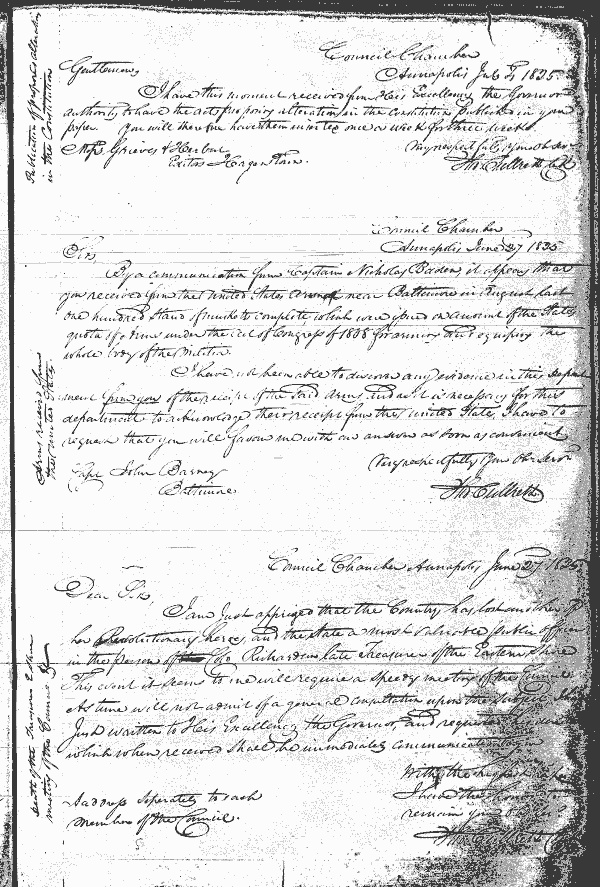 Publication of proposed alteration
in the Constitution
Council Chamber
Annapolis July 2 1825
Gentlemen,
I have this moment received from His Excellency the Governor
authority to have the acts proposing alterations in the Constitution published in your
paper. You will therefore have them inserted once a week for three weeks
Very respectfully
Mess Grieves & Herbert
Editors Hagers Town.
Ths Culbreth
Council Chamber
Annapolis June 27 1825
Sir,
By a communication from Captain Nicholas Baden, it appears that
you received from the United States near Baltimore in August last
one hundred stand of muskets complete, which were on account of the States
quota of arms under the act of Congress of 1808 for arming and equiping the
whole body of the Militia.
I have not been able to discover any evidence in this depart
ment from you of the receipt of the said arms, and as it is necessary for this
department to acknowledge their receipt from the United States, I have to
request that you will favour me with an answer as soon as convenient
Very respectfully Your Obt Servt
Capt John Barney
Baltimore
Ths Culbreth
Arms received from
the United States
Council Chamber Annapolis June 27 1825
Dear Sir,
I am just apprized that the Country has lost another of
her Revolutionary heroes, and the state a most valuable public officer
in the person of Richardson late Treasurer of the Eastern Shore
This event it seems to me will require a speedy meeting of the Council
As time will not admit of a general consultation upon the
Just written to His Excellency the Governor, and
which when received shall be immediately communicated
With the highest
I have the honor to
remain your
Address seperately to each
member of the Council.
Death of the Treasurer E Shore
meeting of the Council